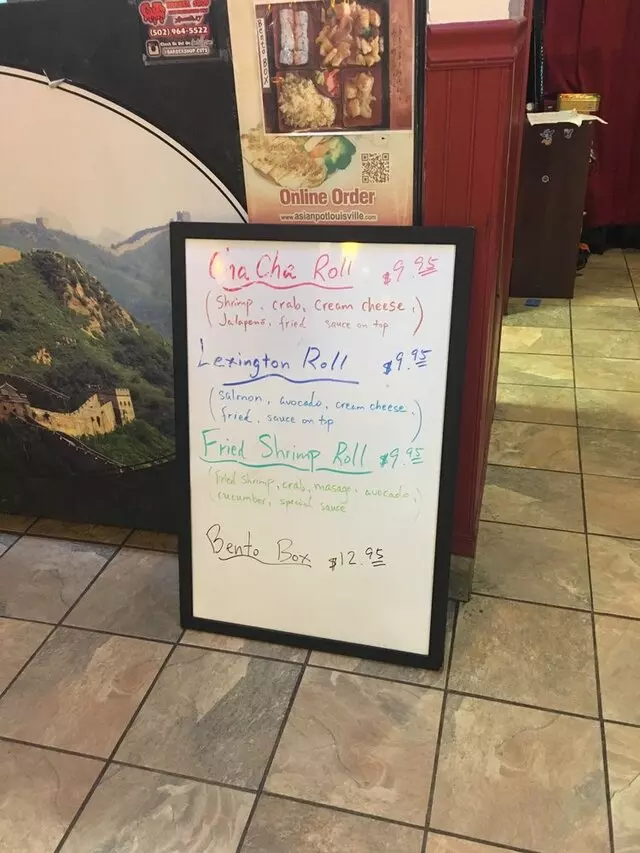 (502) 964-5522
Bento Box
Online Order
www.asianpotlouisville.com
Cha Cha Roll $9.95
(Shrimp, crab, cream cheese,
Jalapeno, fried sauce on top)
Lexington Roll $9.95
(Salmon, avocado, cream cheese,
fried, sauce on top)
Fried Shrimp Roll $9.95
(fried shrimp, crab, masago, avocado,
cucumber, special sauce)
Bento Box $12.95